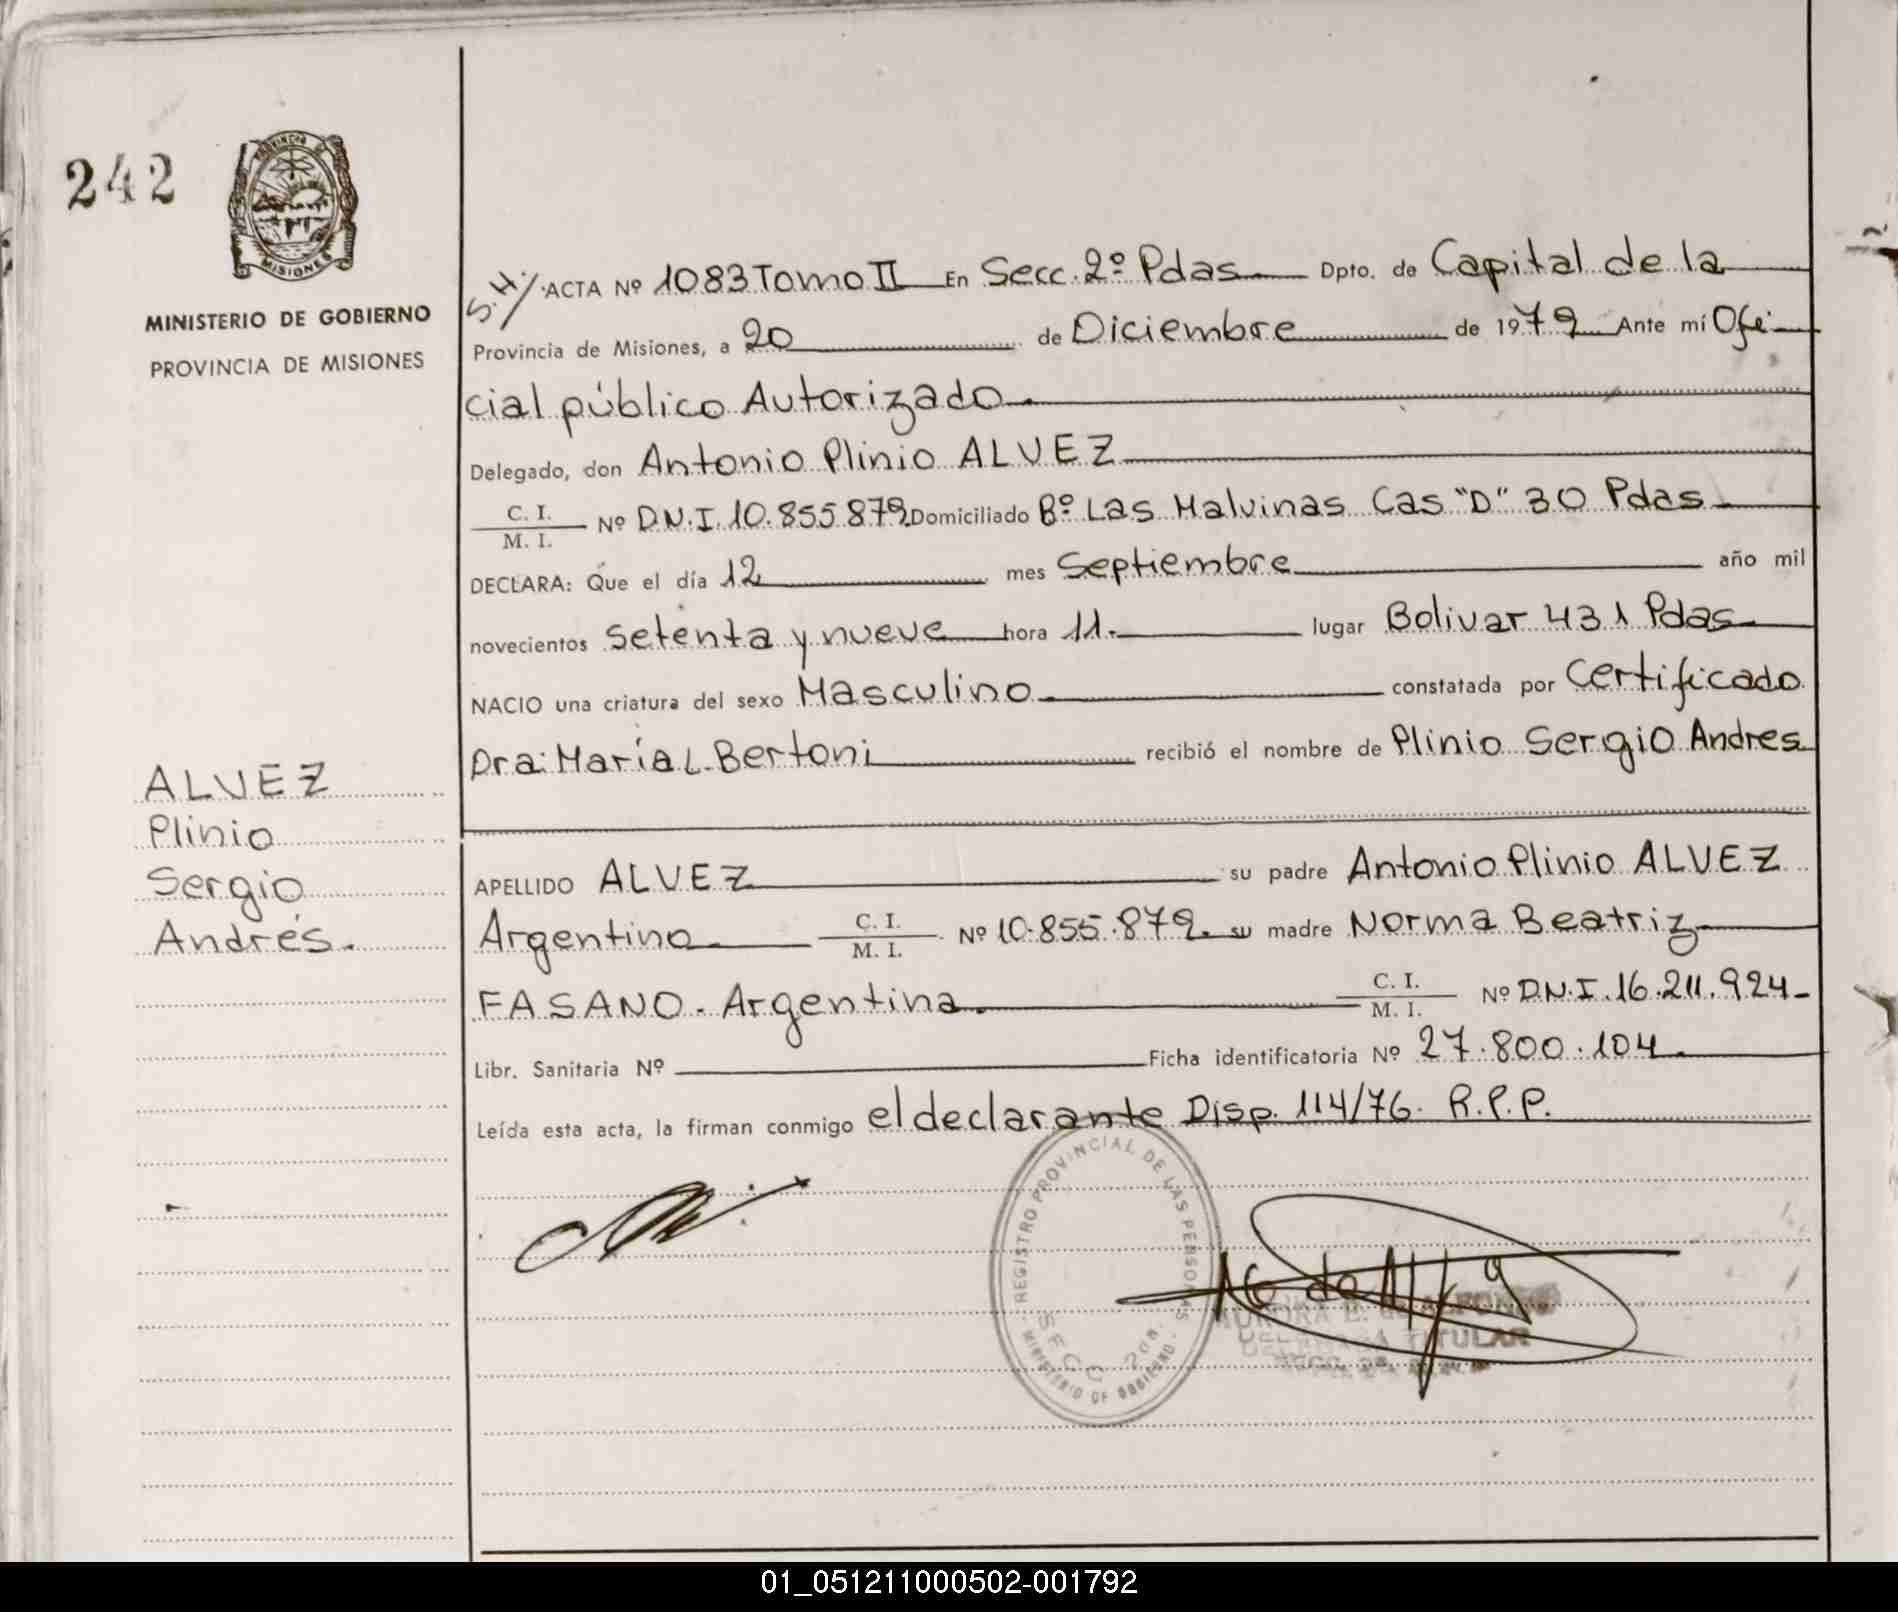 242
PROVINCIA DE
MISIONES
MINISTERIO DE GOBIERNO
PROVINCIA DE MISIONES
ALVEZ
Plinio
Sergio
Andrés.
S.H/ ACTA Nº 1083 Tomo II En Secc. 2º Pdas Dpto. de Capital de la
Provincia de Misiones, a 20 de Diciembre de 1979 Ante mí Ofi
cial público Autorizado.
Delegado, don Antonio Plinio ALVEZ
C. I.
M. I. Nº D.N.I. 10.855.879 Domiciliado Bº Las Malvinas Cas "D" 30 Pdas
DECLARA: Que el día 12 mes Septiembre año mil
novecientos setenta y nueve hora 11. lugar Bolivar 431 Pdas
NACIO una criatura del sexo Masculino. constatada por Certificado
Dra: María L. Bertoni recibió el nombre de Plinio Sergio Andres
APELLIDO ALVEZ su padre Antonio Plinio ALVEZ
Argentino. C. I.
M. I. Nº 10.855.879. su madre Norma Beatriz
FASANO. Argentina. C. I.
M. I. Nº D.N.I. 16.211.924
Libr. Sanitaria Nº Ficha identificatoria Nº 27.800.104.
Leída esta acta, la firman conmigo el declarante Disp. 114/76. R.P.P.
REGISTRO PROVINCIAL DE LAS PERSONAS
SECC. 2da.
MINISTERIO DE GOBIERNO
AURORA DE ALFONSO
DELEGADA TITULAR
01_051211000502-001792